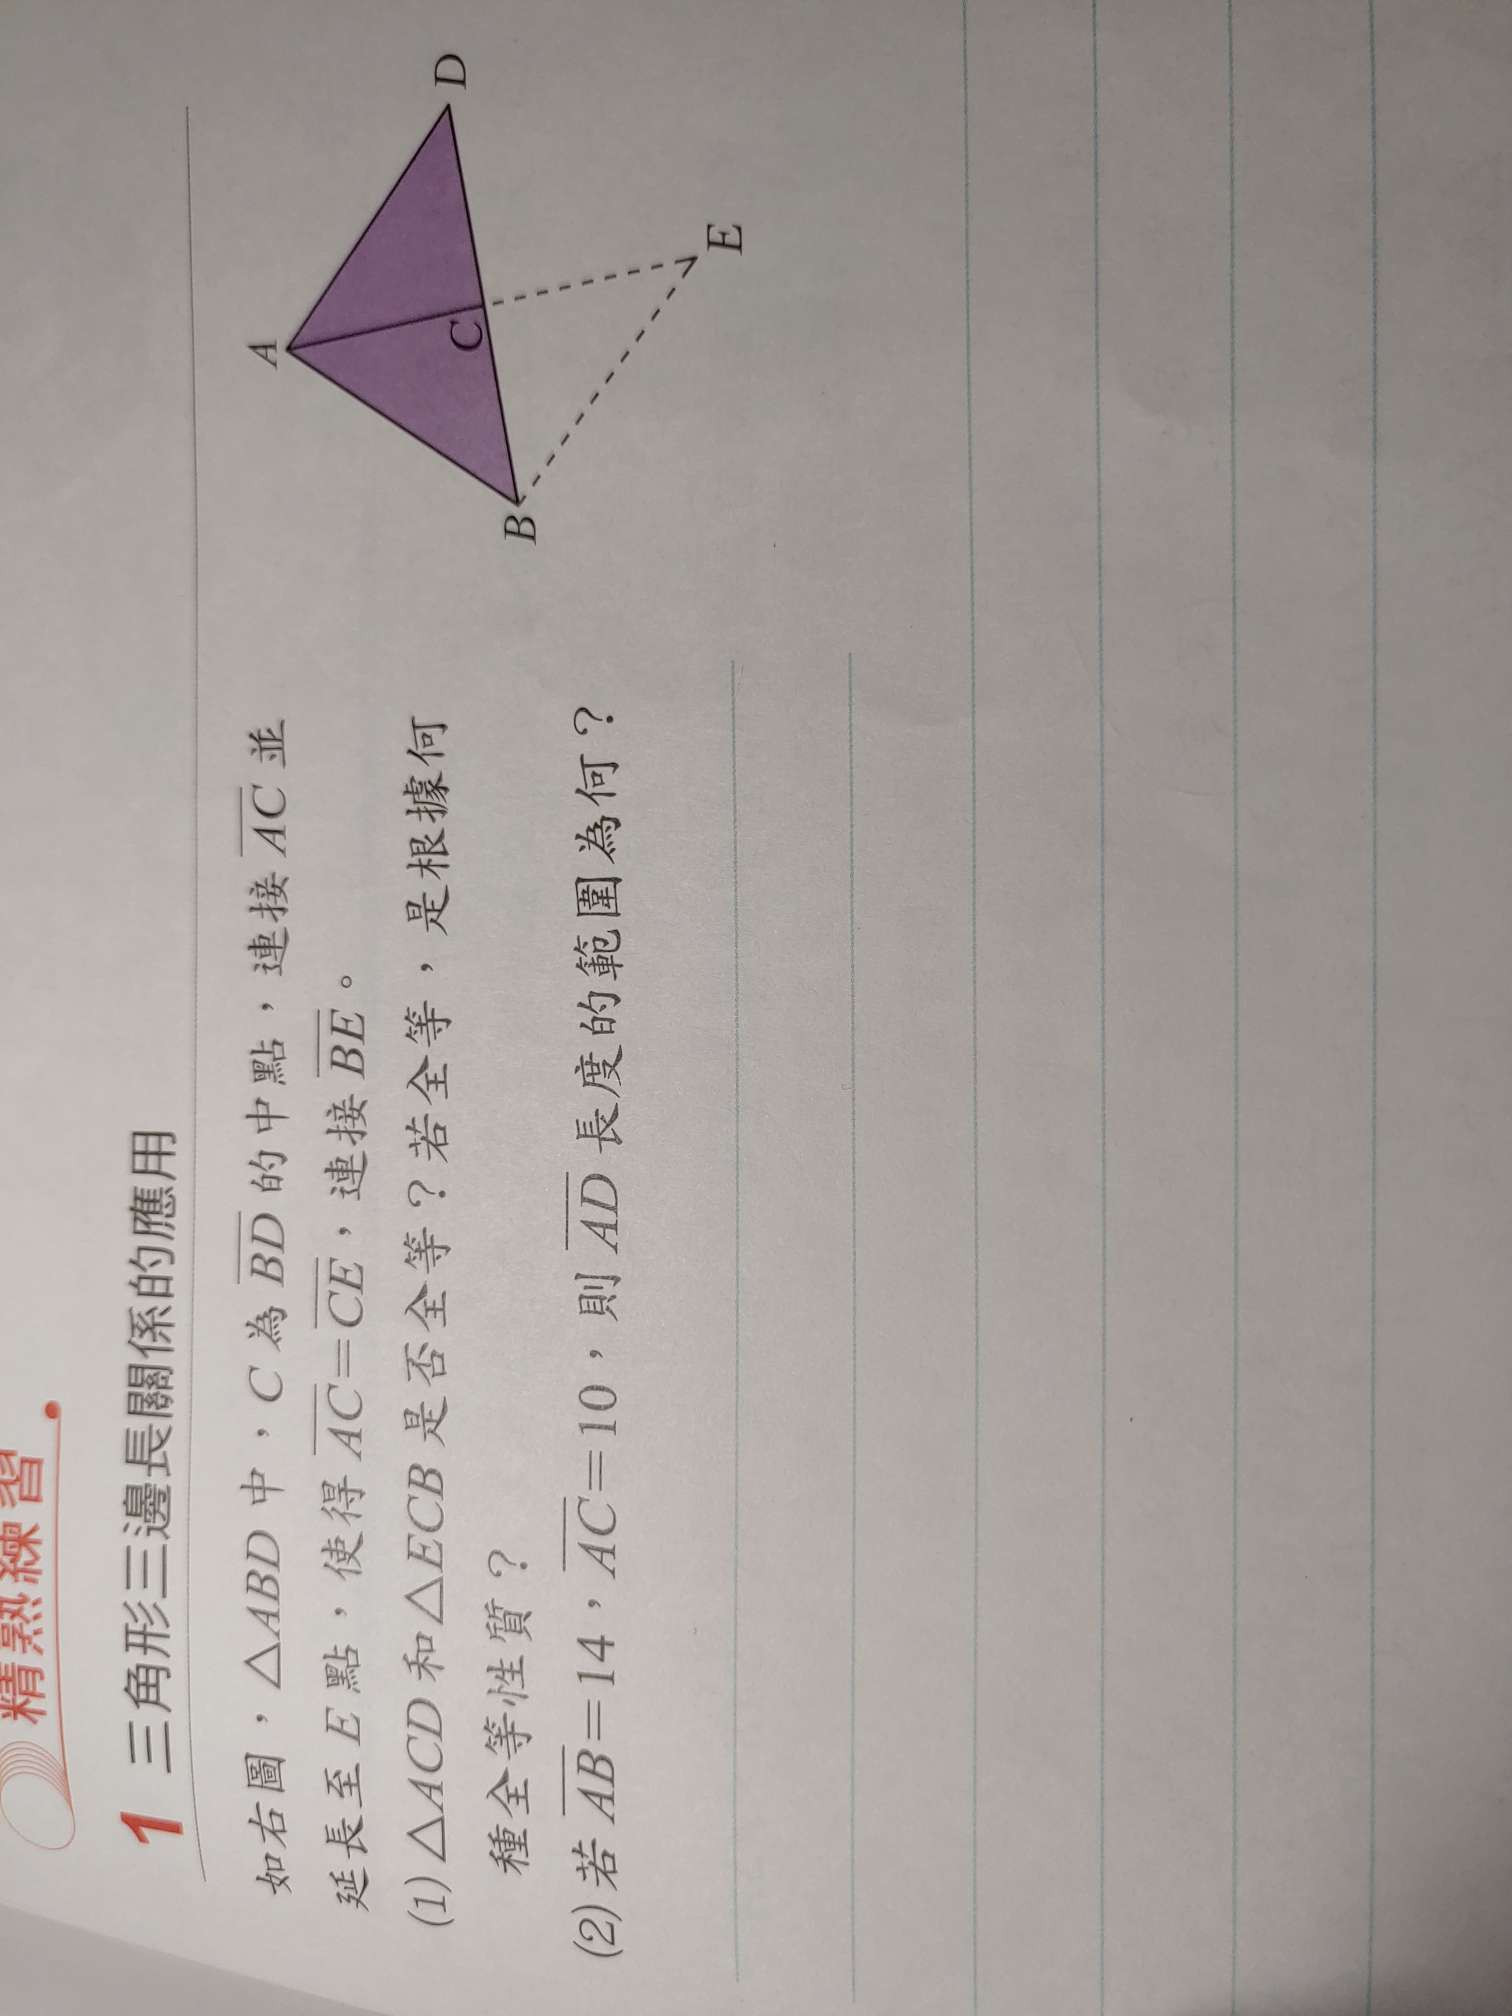 精熟練習
1 三角形三邊長關係的應用
如右圖，△ABD 中，C 為 BD 的中點，連接 AC 並
延長至 E 點，使得 AC=CE，連接 BE。
(1) △ACD 和 △ECB 是否全等？若全等，是根據何
種全等性質？
(2) 若 AB=14，AC=10，則 AD 長度的範圍為何？
A
B
C
D
E